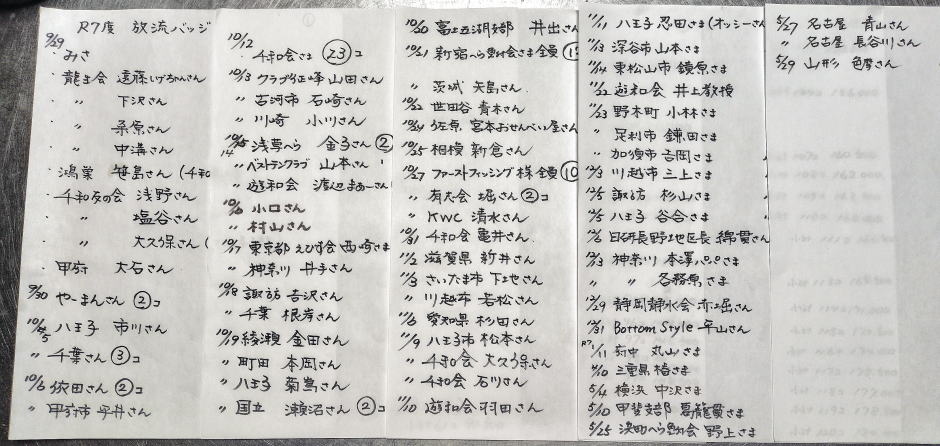 R7度 放流バッジ
9/29
・みさ
・龍さ会 遠藤いづみんさん
・〃 下沢さん
・〃 桑原さん
・〃 中溝さん
・鴻巣 笹島さん(千和
・千和友の会 浅野さん
・〃 塩谷さん
・〃 大久保さん(
・甲府 大石さん
9/30 やーまんさん ②コ
10/5 八王子 市川さん
〃 千葉さん ③コ
10/6 依田さん ②コ
〃 甲府市 宇井さん
10/12
千和会さま ㉓コ
10/13 クラブ釣正峰 山田さん
〃 古河市 石崎さん
〃 川崎 小川さん
10/14 浅草へら 金子さん ②
〃 ベストランクラブ 山本さん
〃 遊和会 渡辺まぁーさん
10/16 小口さん
〃 村山さん
10/17 東京都 えび寿会 西崎さま
〃 神奈川 丹子さん
10/18 諏訪 吉沢さん
〃 千葉 根岸さん
10/19 綾瀬 金田さん
〃 町田 本岡さん
〃 八王子 菊嶌さん
〃 国立 瀬沼さん ②コ
10/20 富士五湖支部 井出さん
10/21 新宿へら鮒会さま 全員
〃 茨城 矢島さん
10/22 世田谷 青木さん
10/24 佐原 宮本おせんべい屋さん
10/25 相模 新倉さん
10/27 ファーストフィッシング様 全員 ⑩
〃 有大会 堀さん ②コ
〃 KWC 清水さん
10/31 千和会 亀井さん
11/2 滋賀県 新井さん
11/3 さいたま市 下地さん
〃 川越市 若松さん
11/6 愛知県 杉田さん
11/9 八王子市 松本さん
〃 千和会 大久保さん
〃 千和会 石川さん
11/10 遊和会 羽田さん
11/11 八王子 忍田さま(オッシーさん
11/13 深谷市 山本さま
11/14 東松山市 鏡原さま
11/22 遊和会 井上教授
11/23 野木町 小林さま
〃 足利市 鎌田さま
〃 加須市 吉岡さま
11/23 川越市 三上さま
12/5 諏訪 杉山さま
12/5 八王子 谷合さま
12/6 日研長野地区長 綿貫さん
12/13 神奈川 本澤パパさま
〃 〃 各務原さま
12/29 静岡静水会 赤堀さん
12/31 Bottom Style 平山さん
1/11 府中 丸山さま
1/10 三重県 椿さま
5/4 横浜 中沢さま
5/10 甲斐支部 曷龍貫さま
5/25 浜町へら鮒会 野上さま
5/27 名古屋 青山さん
〃 名古屋 長谷川さん
5/29 山形 色摩さん